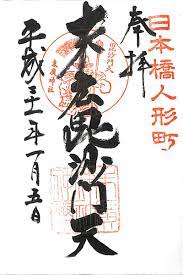 日本橋人形町
奉拝
末広毘沙門天
末廣神社
平成三十一年一月五日